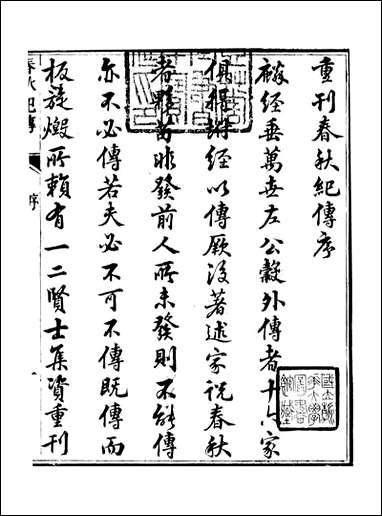 重刊春秋紀傳序
麟經垂萬世左公穀外傳者十家
俱得附經以傳厥後著述家說春秋
者雖富非發前人所未發則不能傳
亦不必傳若夫必不可不傳既傳而
板旋燬所賴有一二賢士集資重刊
春秋紀傳
序